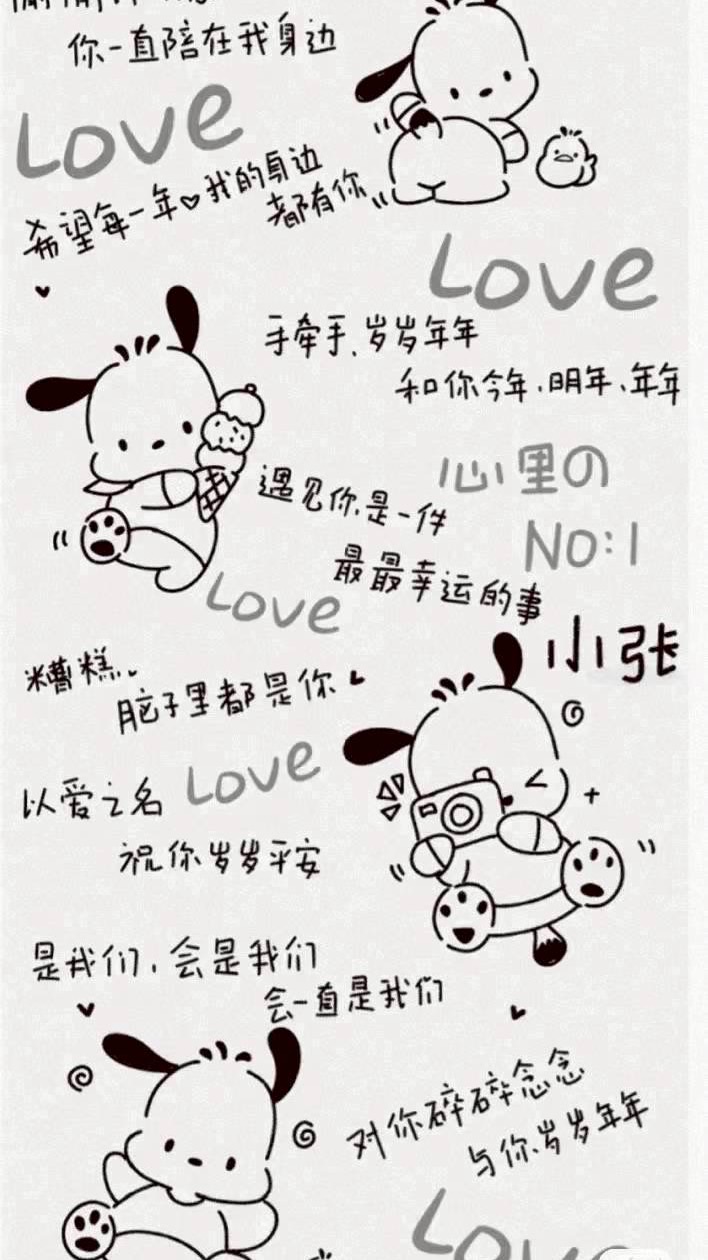 你一直陪在我身边
Love
希望每一年♡我的身边
都有你
Love
手牵手、岁岁年年
和你今年、明年、年年
心里の
NO:1
遇见你是一件
最最幸运的事
Love
小张
糟糕、
脑子里都是你
Love
以爱之名
祝你岁岁平安
是我们，会是我们
会一直是我们
对你碎碎念念
与你岁岁年年
Love